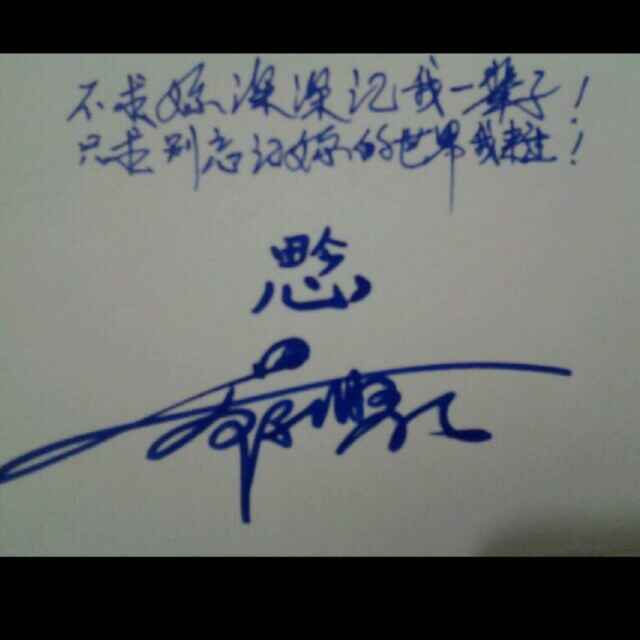 不求妳深深记我一辈子！
只求别忘记妳的世界我来过！